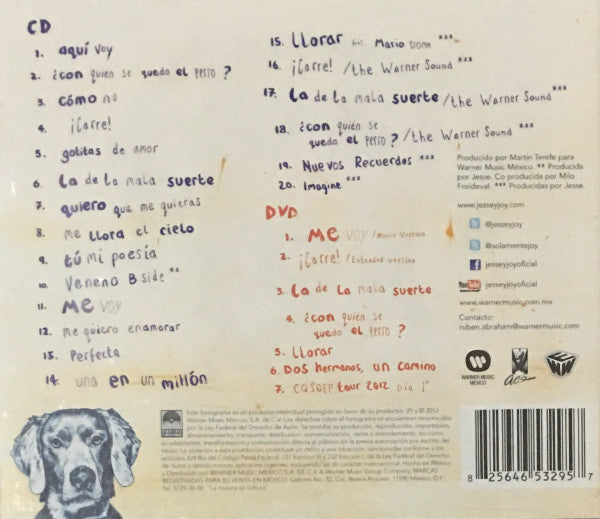 CD
1. aquí voy
2. ¿con quién se queda el perro?
3. cómo no
4. ¡Corre!
5. gotitas de amor
6. La de la mala suerte
7. quiero que me quieras
8. me llora el cielo
9. tú mi poesía
10. Veneno B side **
11. Me voy
12. me quiero enamorar
13. Perfecta
14. una en un millón
15. Llorar feat. Mario Domm ***
16. ¡Corre! /the Warner Sound ***
17. La de la mala suerte /the Warner Sound ***
18. ¿con quién se
queda el perro? /the Warner Sound ***
19. Nuevos Recuerdos ***
20. Imagine ***
DVD
1. Me voy /Movie Version
2. ¡Corre! /Extended version
3. La de la mala suerte
4. ¿con quién se
queda el perro?
5. Llorar
6. Dos hermanos, un camino
7. CQSQEP tour 2012 Día 1°
Producido por Martin Terefe para
Warner Music México. ** Producida
por Jesse. Co producida por Milo
Froideval. *** Producidas por Jesse.
www.jesseyjoy.com
@jesseyjoy
@solamentejoy
jesseyjoyoficial
YouTube jesseyjoyoficial
www.warnermusic.com.mx
Contacto:
ruben.abraham@warnermusic.com
WARNER MUSIC
MÉXICO
Este fonograma es un producto intelectual protegido en favor de su productor (P) y © 2012
Warner Music México, S.A. de C.V. Los derechos sobre el fonograma se encuentran reconocidos
por la Ley Federal del Derecho de Autor. Se prohíbe su producción, reproducción, importación,
almacenamiento, transporte, distribución, comercialización, venta o arrendamiento, así como
su adaptación, transformación y comunicación al público sin la previa autorización por escrito del
titular. La violación a esta prohibición constituye un delito y una infracción, sancionadas conforme a los
Derecho de Autor y demás normas aplicables vigentes, incluyendo las de carácter internacional. Hecho en México
y Distribuido por WARNER MUSIC MEXICO S.A. DE C.V. A Warner Music Group Company. MARCAS
REGISTRADAS PARA SU VENTA EN MÉXICO.
"La música es cultura"
8 25646 53295 7